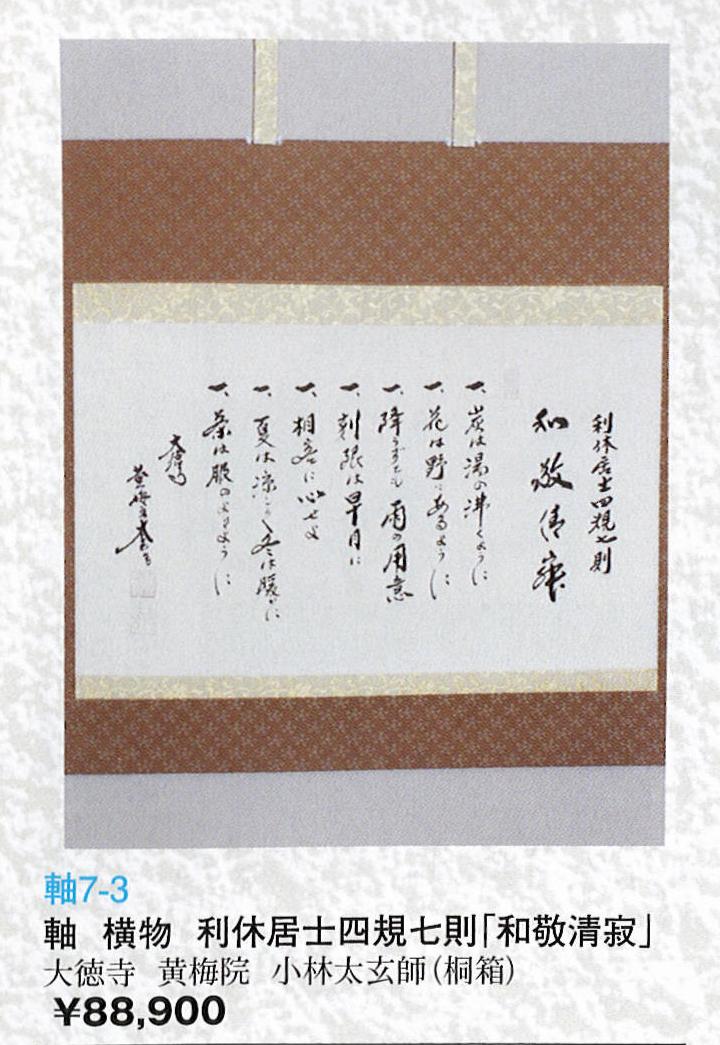 利休居士四規七則
和敬清寂
一、炭は湯の沸くように
一、花は野にあるように
一、降らずとも雨の用意
一、刻限は早目に
一、相客に心せよ
一、夏は涼しく冬は暖かに
一、茶は服のよきように
大徳寺
黄梅主 太玄
軸7-3
軸 横物 利休居士四規七則「和敬清寂」
大徳寺 黄梅院 小林太玄師(桐箱)
¥88,900